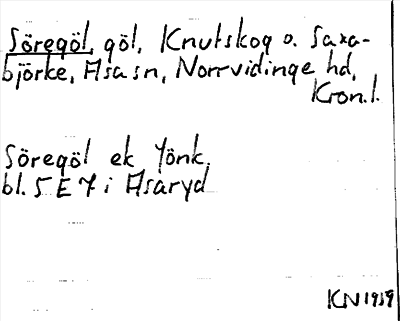 Söregöl, göl, Knutskog o. Saxa-
björke, Asa sn, Norrvidinge hd,
Kron.l.
Söregöl ek Jönk.
bl. 5 E 7 i Asaryd
KN 1959